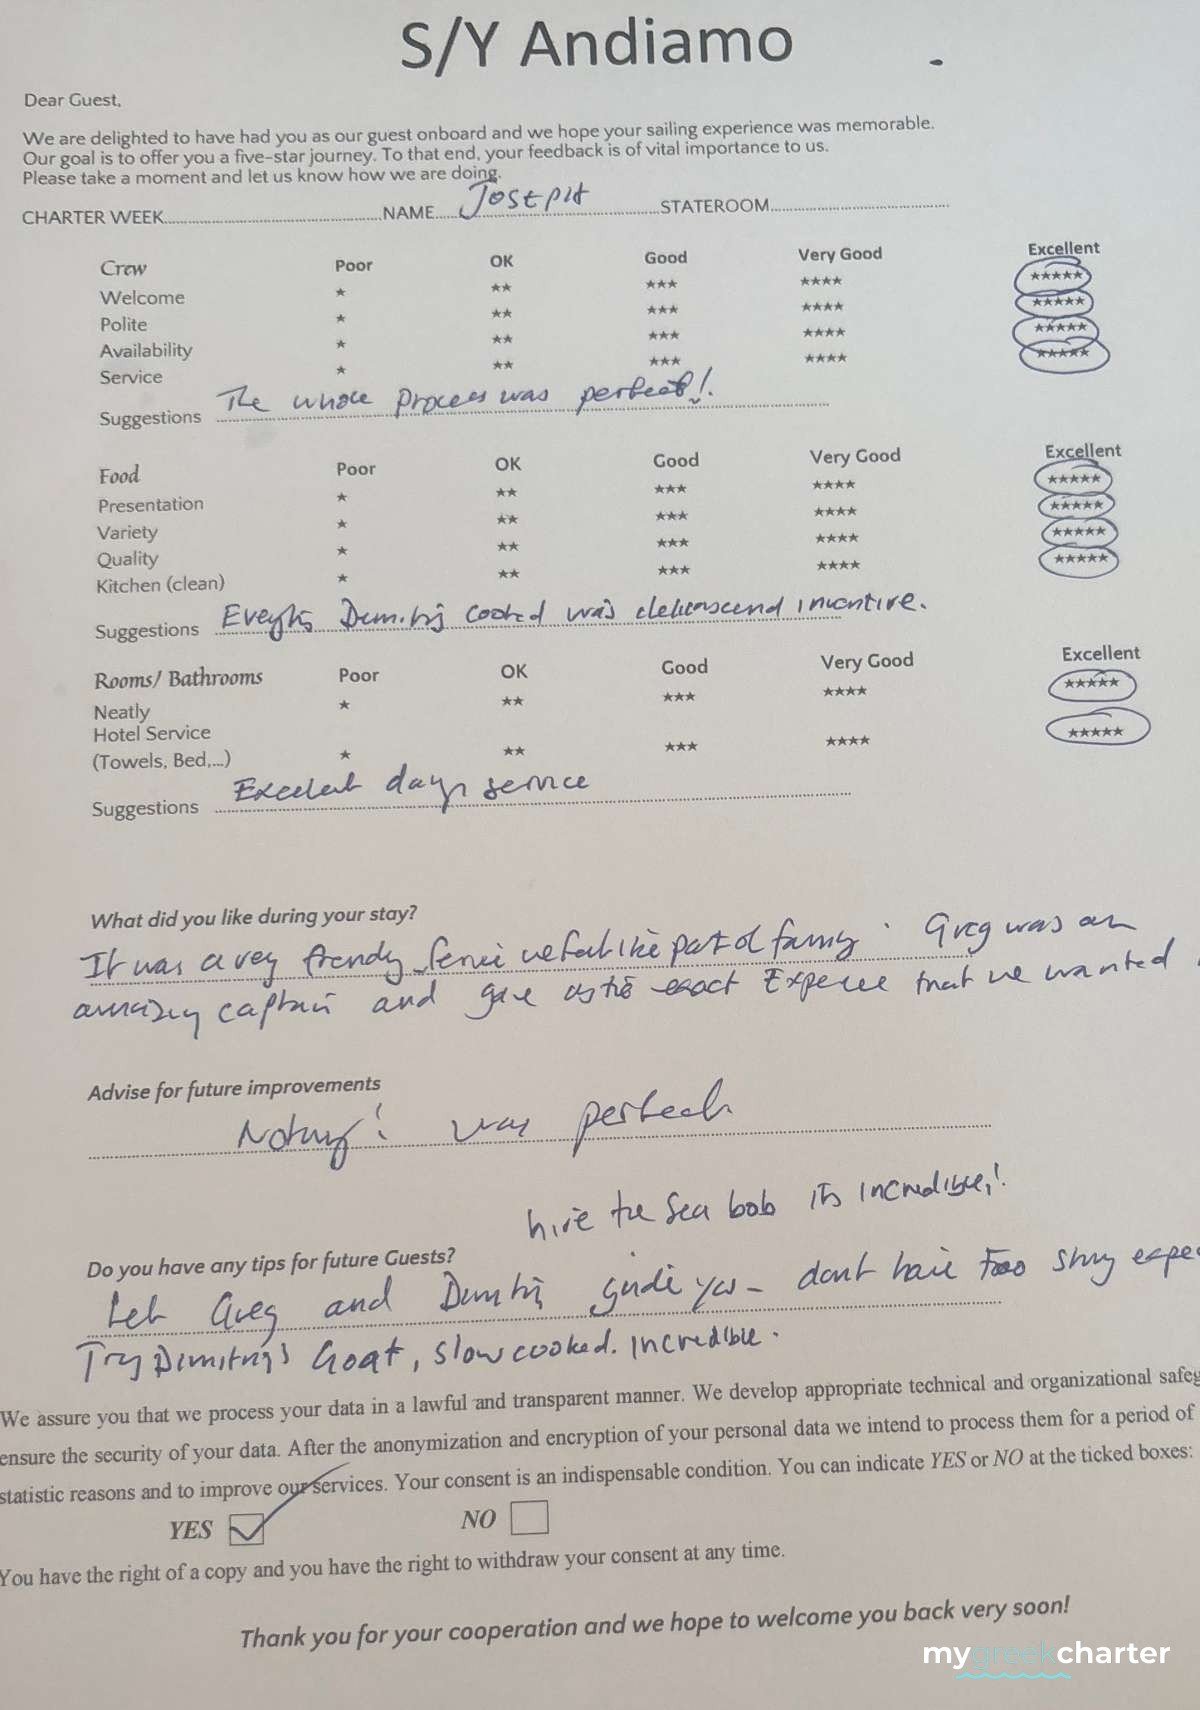 S/Y Andiamo
Dear Guest,
We are delighted to have had you as our guest onboard and we hope your sailing experience was memorable.
Our goal is to offer you a five-star journey. To that end, your feedback is of vital importance to us.
Please take a moment and let us know how we are doing.
CHARTER WEEK NAME Joseph STATEROOM
Crew Poor OK Good Very Good Excellent
Welcome ★ ★★ ★★★ ★★★★ ★★★★★
Polite ★ ★★ ★★★ ★★★★ ★★★★★
Availability ★ ★★ ★★★ ★★★★ ★★★★★
Service ★ ★★ ★★★ ★★★★ ★★★★★
Suggestions The whole process was perfect!
Food Poor OK Good Very Good Excellent
Presentation ★ ★★ ★★★ ★★★★ ★★★★★
Variety ★ ★★ ★★★ ★★★★ ★★★★★
Quality ★ ★★ ★★★ ★★★★ ★★★★★
Kitchen (clean) ★ ★★ ★★★ ★★★★ ★★★★★
Suggestions Dimitris cooked was inventive.
Rooms/ Bathrooms Poor OK Good Very Good Excellent
Neatly ★ ★★ ★★★ ★★★★ ★★★★★
Hotel Service
(Towels, Bed,...) ★ ★★ ★★★ ★★★★ ★★★★★
Suggestions Excellent service
What did you like during your stay?
It was a very friendly service we felt like part of family. Greg was an
amazing captain and gave us the exact experience that we wanted
Advise for future improvements
Nothing! was perfect
hire the Sea bob its incredible!
Do you have any tips for future Guests?
Let Greg and Dimitris guide you - dont have too
Try Dimitris's Goat, slow cooked. incredible.
We assure you that we process your data in a lawful and transparent manner. We develop appropriate technical and organizational safeg
ensure the security of your data. After the anonymization and encryption of your personal data we intend to process them for a period of
statistic reasons and to improve our services. Your consent is an indispensable condition. You can indicate YES or NO at the ticked boxes:
YES NO
You have the right of a copy and you have the right to withdraw your consent at any time.
Thank you for your cooperation and we hope to welcome you back very soon!
mygreekcharter